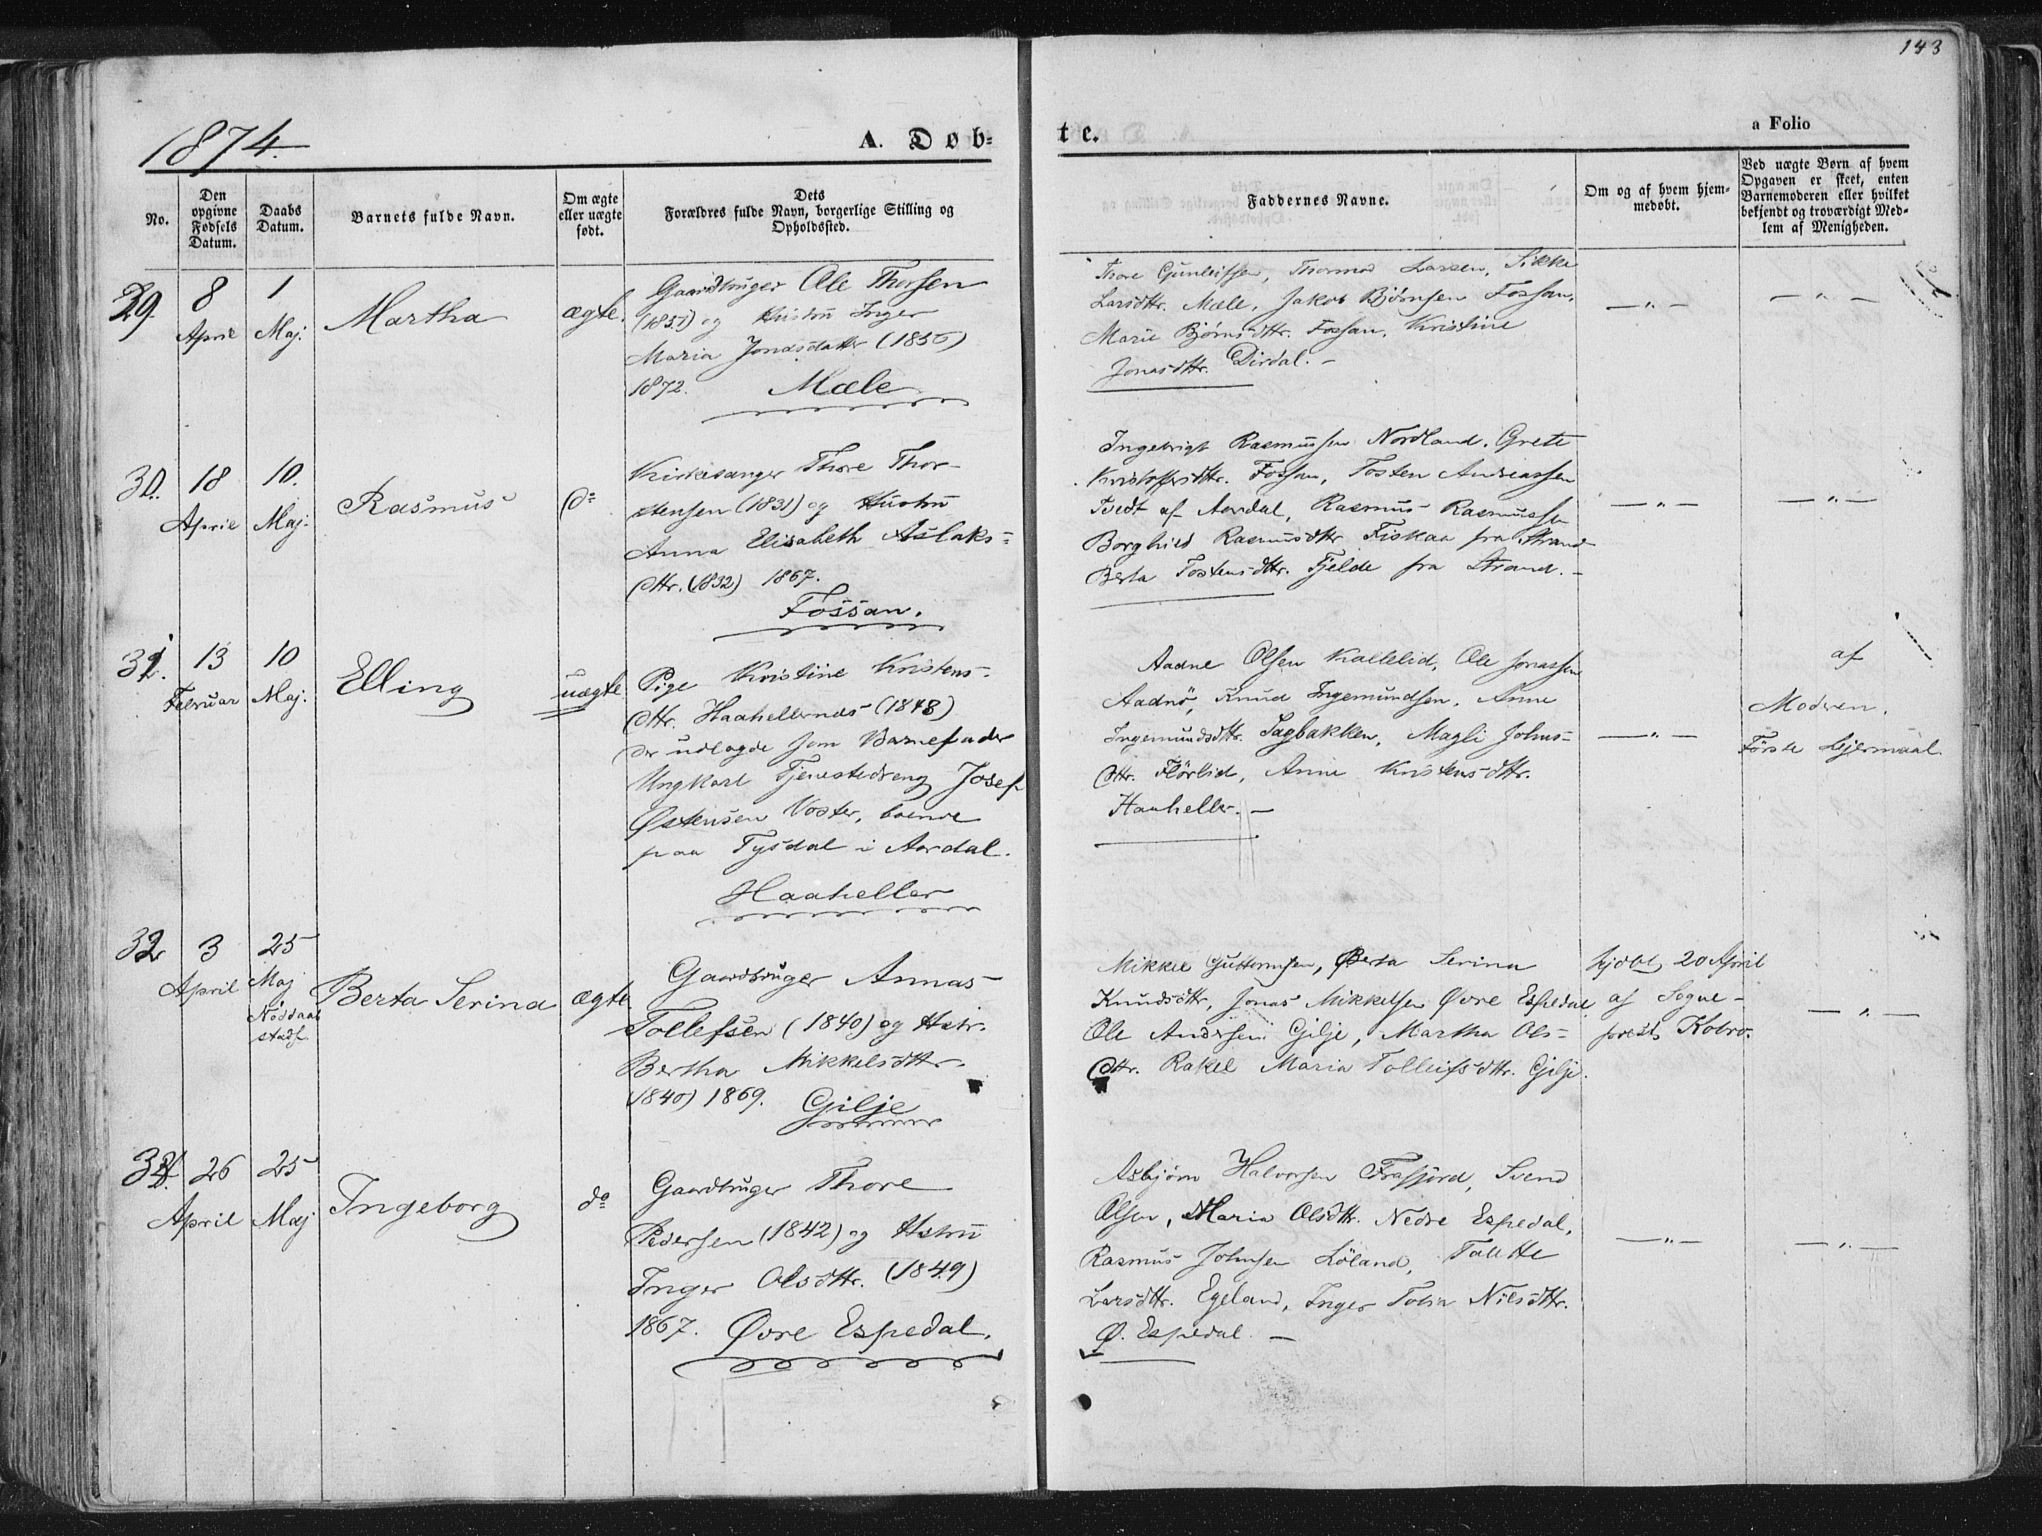 143
1874.
A. Døb-
te.
a Folio
No.
Den
opgivne
Fødsels
Datum.
Daabs
Datum.
Barnets fulde Navn.
Om ægte
eller uægte
født.
Dets
Forældres fulde Navn, borgerlige Stilling og
Opholdssted.
Faddernes Navne.
Om og af hvem hjem-
medøbt.
Ved uægte Børn af hvem
Opgaven er skeet, enten
Barnemoderen eller hvilket
bekjendt og troværdigt Med-
lem af Menigheden.
29.
8
April
1
Maj.
Martha
ægte.
Gaardbruger Ole Thorsen
(1851) og Hustru Inger
Maria Jonasdatter (1850)
1872. Mæle
Thore Gunleifsen, Thormod Larsen, Sikke
Larsdttr. Mæle, Jakob Bjørnsen Fossan,
Marie Bjørnsdttr. Fossan, Kristine
Jonasdttr. Dirdal. -
— " —
— " —
30.
18
April
10.
Maj.
Rasmus
do
Kirkesanger Thore Thor-
stensen (1831) og Hustru
Anna Elisabeth Aslaks-
dttr. (1832) 1867.
Fossan.
Ingebrigt Rasmussen Nordland. Grete
Kristoffersdttr. Fossan, Tosten Andreassen
Tvedt af Aardal, Rasmus Rasmussen
Borghild Rasmusdttr Fiskaa fra Strand
Berta Tostensdttr. Fjelde fra Strand. -
— " —
— " —
31.
13
Februar
10
Maj.
Elling
uægte
Pige Kristine Kristens-
dttr. Haahellernes (1848)
der udlagde som Barnefader
Ungkarl Tjenestedreng Josef
Østensen Voster, boende
paa Tysdal i Aardal.
Haaheller
Aadne Olsen Kallelid, Ole Jonassen
Aadnø, Knud Ingemundsen, Anne
Ingemundsdttr. Sagbakken, Magli Johns-
dttr. Flørlid, Anne Kristensdttr.
Haaheller. —
— " —
af
Moderen.
Første Lejermaal.
32
3
April
25
Maj
Nøddaab
stadf.
Berta Serina
ægte
Gaardbruger Annas
Tollefsen (1840) og Hstr.
Bertha Mikkelsdttr.
1840) 1869. Gilje
Mikkel Guttormsen, Berta Serina
Knudsdttr, Jonas Mikkelsen Øvre Espedal
Ole Andersen Gilje, Martha Ols-
dttr. Rakel Maria Tolleifsdttr. Gilje.
hjdbt, 20 April
af Sogne-
prest Kobro.
— " —
33.
26
April
25
Maj
Ingeborg
do
Gaardbruger Thore
Pedersen (1842) og Hstru
Inger Olsdttr. (1849)
1867. Øvre Espedal.
Asbjørn Halvorsen Frafjord, Svend
Olsen, Maria Olsdttr. Nedre Espedal,
Rasmus Johnsen Løland, Tallette
Larsdttr. Egeland, Inger Tobia Nilsdttr.
Ø. Espedal. —
— " —
— " —